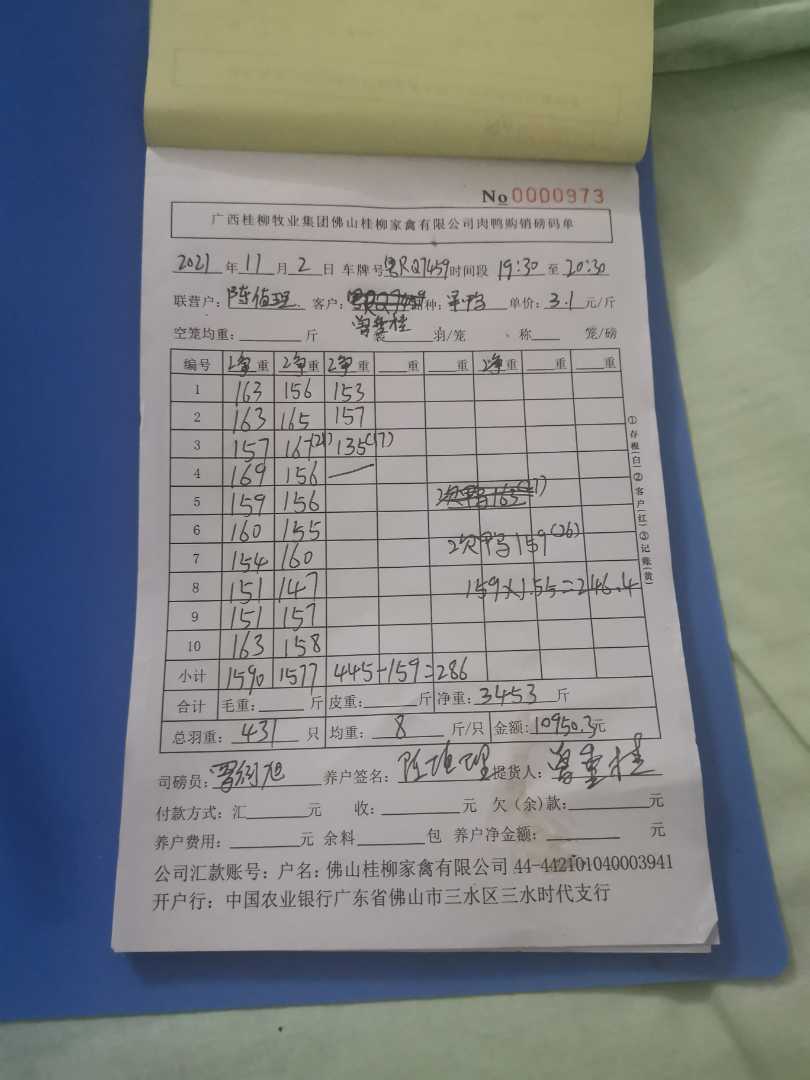 No 0000973
广西桂柳牧业集团佛山桂柳家禽有限公司肉鸭购销磅码单
2021 年 11 月 2 日 车牌号 粤RQ7459 时间段 19:30 至 20:30
联营户: 客户: 种: 单价: 3.1 元/斤
空笼均重: 斤 装 羽/笼 、称 笼/磅
编号 净重 净重 净重 重 重 净重 重 重
1 163 156 153
2 163 165 157
3 157 167(21) 135(17)
4 169 156
5 159 156
6 160 155 次鸭 159(26)
7 154 160
8 151 147 159×1.55=246.4
9 151 157
10 163 158
小计 1590 1577 445-159=286
合计 毛重: 斤 皮重: 斤 净重: 3453 斤
总羽重: 431 只 均重: 8 斤/只 金额: 10950.3元
司磅员: 养户签名: 提货人:
付款方式: 汇 元 收: 元 欠(余)款: 元
养户费用: 元 余料 包 养户净金额: 元
公司汇款账号: 户名: 佛山桂柳家禽有限公司 44-442101040003941
开户行: 中国农业银行广东省佛山市三水区三水时代支行
①存根(白)②客户(红)③记账(黄)